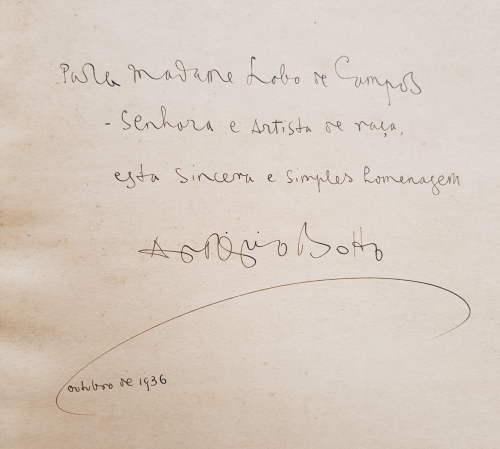 Para Madame Lobo de Campos
- Senhora e Artista de raça,
esta sincera e simples homenagem
António Botto
outubro de 1936